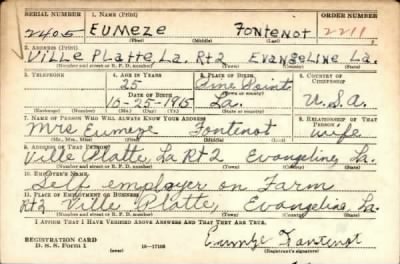 SERIAL NUMBER 1. NAME (Print) ORDER NUMBER
2405 EUMEZE FONTENOT 2211
(First) (Middle) (Last)
2. ADDRESS (Print)
VILLE PLATTE, La. Rt2 EVANGELINE La.
(Number and street or R. F. D. number) (Town) (County) (State)
3. TELEPHONE 4. AGE IN YEARS 5. PLACE OF BIRTH 6. COUNTRY OF CITIZENSHIP
25 Pine Point
DATE OF BIRTH (Town or county)
10-25-1915 La. U.S.A.
(Mo.) (Day) (Yr.) (State or country)
7. NAME OF PERSON WHO WILL ALWAYS KNOW YOUR ADDRESS 8. RELATIONSHIP OF THAT PERSON
Mrs Eumeze Fontenot wife
(Mr., Mrs., Miss) (First) (Middle) (Last)
9. ADDRESS OF THAT PERSON
Ville Platte, La Rt 2 Evangeline, La.
(Number and street or R. F. D. number) (Town) (County) (State)
10. EMPLOYER'S NAME
Self employer on Farm
11. PLACE OF EMPLOYMENT OR BUSINESS
Rt2 Ville Platte, Evangeline, La.
(Number and street or R. F. D. number) (Town) (County) (State)
I AFFIRM THAT I HAVE VERIFIED ABOVE ANSWERS AND THAT THEY ARE TRUE.
REGISTRATION CARD
D. S. S. Form 1 (over) 16—17105 Eumeze Fontenot
(Registrant's signature)